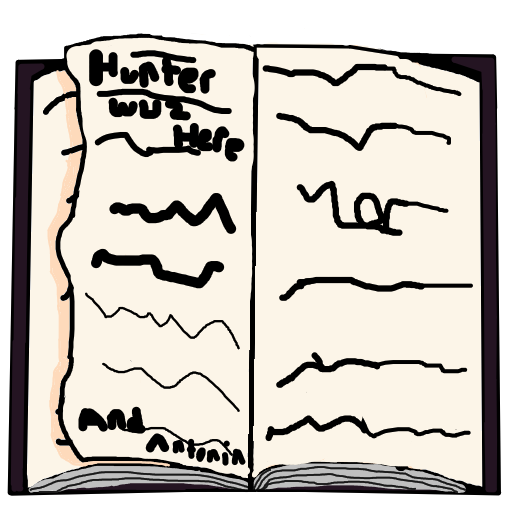 Hunter
wuz
Here
And
Antonin